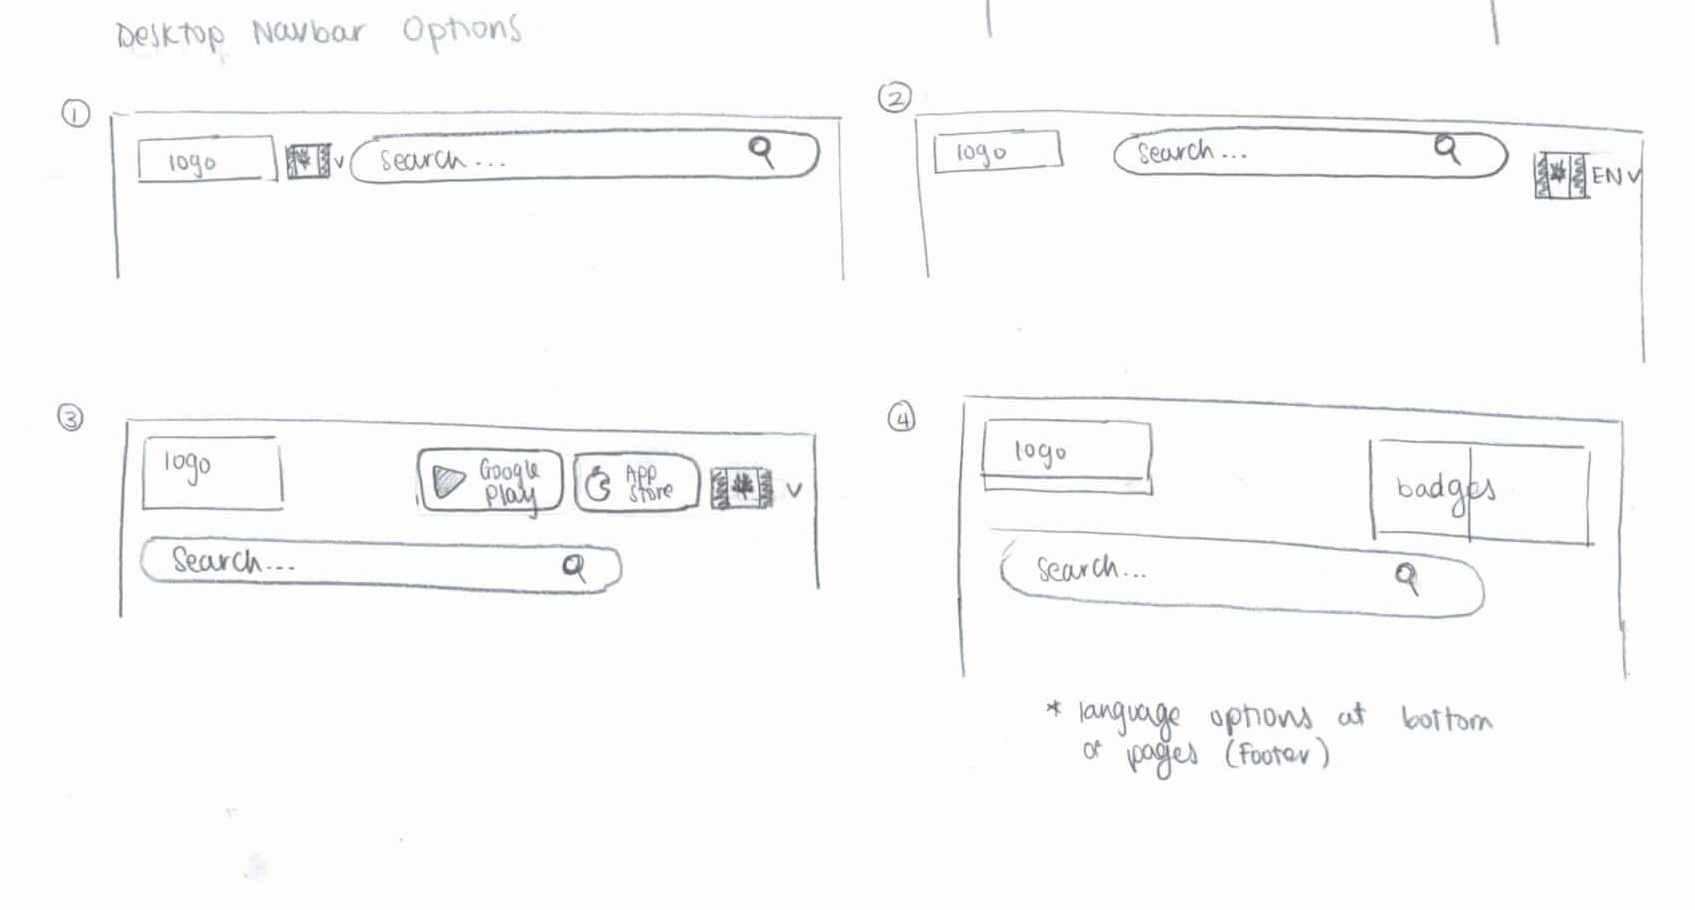 Desktop Navbar Options
①
logo
v
Search...
②
logo
Search...
EN v
③
logo
Google
Play
App
Store
v
Search...
④
logo
badges
Search...
* language options at bottom
of pages (Footer)